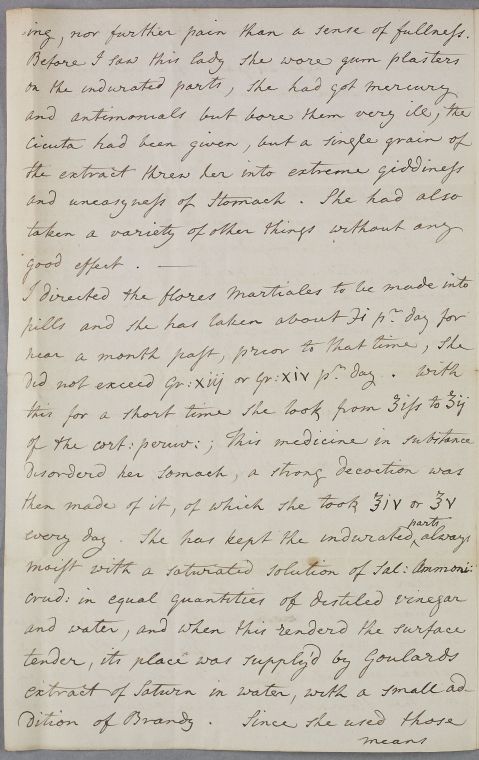 ing, nor further pain than a sense of fullness.
Before I saw this lady she wore gum plasters
on the indurated parts, she had got mercury
and antimonials but bore them very ill, the
Cicuta had been given, but a single grain of
the extract threw her into extreme giddiness
and uneasyness of Stomach. She had also
taken a variety of other things without any
good effect. —
I directed the flores Martiales to be made into
pills and she has taken about ʒi pr. day for
near a month past, prior to that time, she
did not exceed Gr: xiij or Gr: xiv pr. day. With
this for a short time she took from ʒiſs to ʒij
of the cort: peruv:; This medicine in substance
disorderd her somach, a strong decoction was
then made of it, of which she took ℥iv or ℥v
every day. She has kept the indurated parts always
moist with a saturated solution of Sal: Ammoni:
crud: in equal quantities of distiled vinegar
and water, and when this renderd the surface
tender, its place was supply'd by Goulards
extract of Saturn in water, with a small ad
dition of Brandy. Since she used those
means